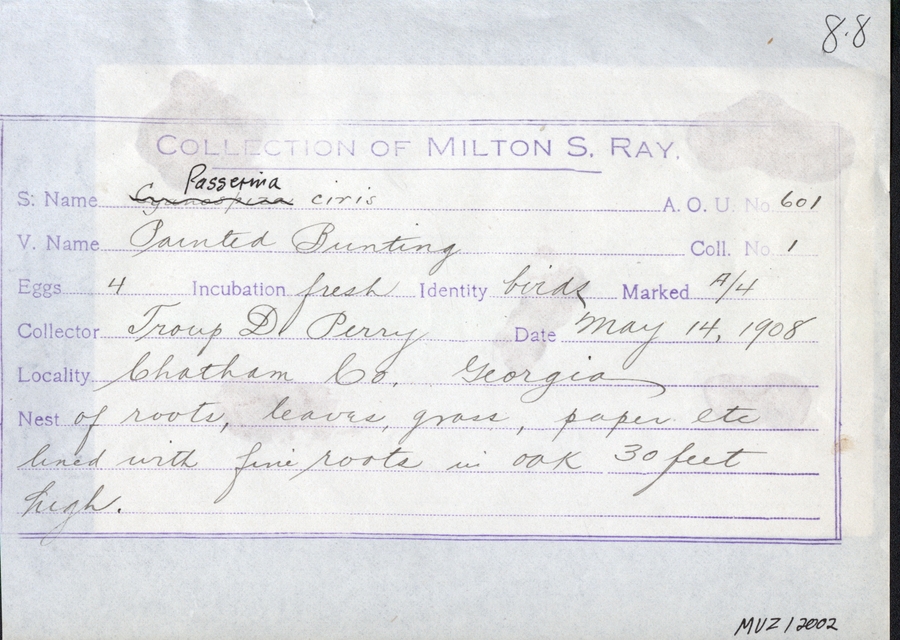 8.8
COLLECTION OF MILTON S. RAY.
Passerina
S: Name ciris A. O. U. No. 601
V. Name Painted Bunting Coll. No. 1
Eggs 4 Incubation fresh Identity birds Marked A/4
Collector Troup D. Perry Date May 14, 1908
Locality Chatham Co. Georgia
Nest of roots, leaves, grass, paper etc
lined with fine roots in oak 30 feet
high.
MVZ / 2002